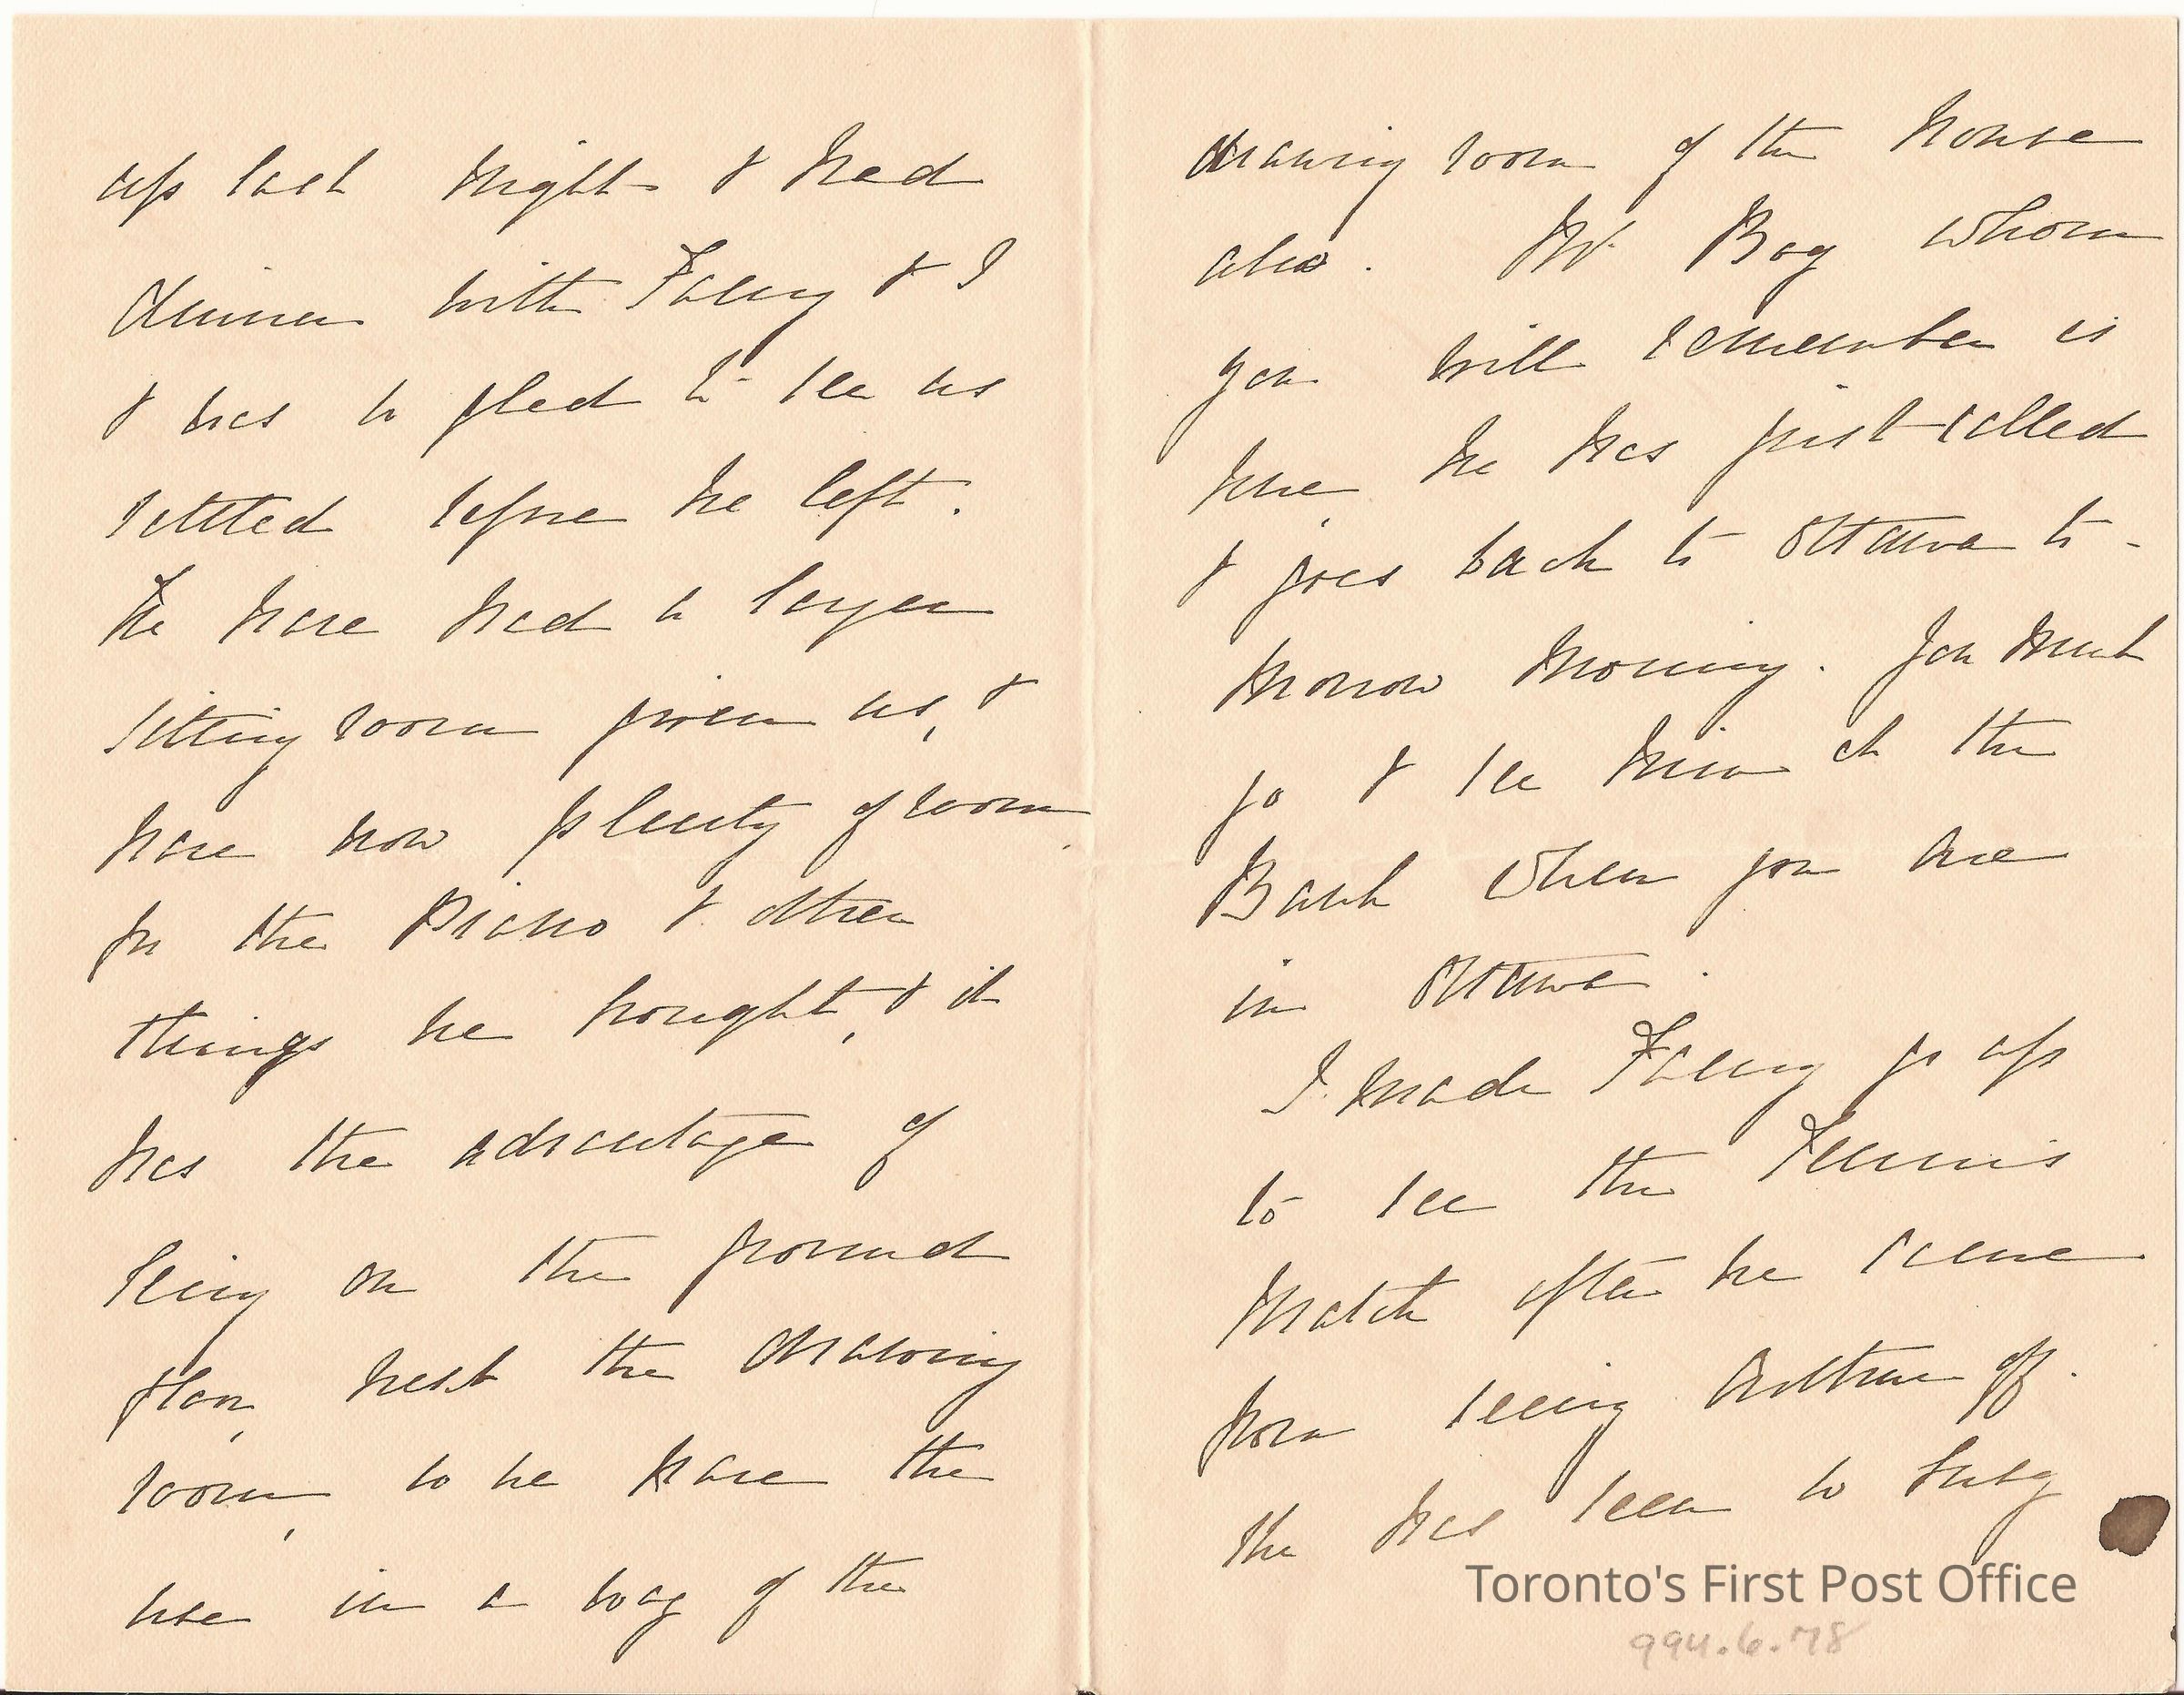 up last night & had
dinner with Fanny & I
& was so glad to see us
settled before he left.
We have had a larger
sitting room given us, &
have now plenty of room
for the Piano & other
things we bought, & it
has the advantage of
being on the ground
floor, next the drawing
room, so we have the
use in a way of the
drawing room of the house
also. Mr. Bog whom
you will remember is
here, he has just called
& goes back to Ottawa to-
morrow morning. You must
go & see him at the
Bank when you are
in Ottawa.
I made Fanny go up
to see the Tennis
Match after we came
from seeing Arthur off.
She has been so busy
Toronto's First Post Office
994.6.78